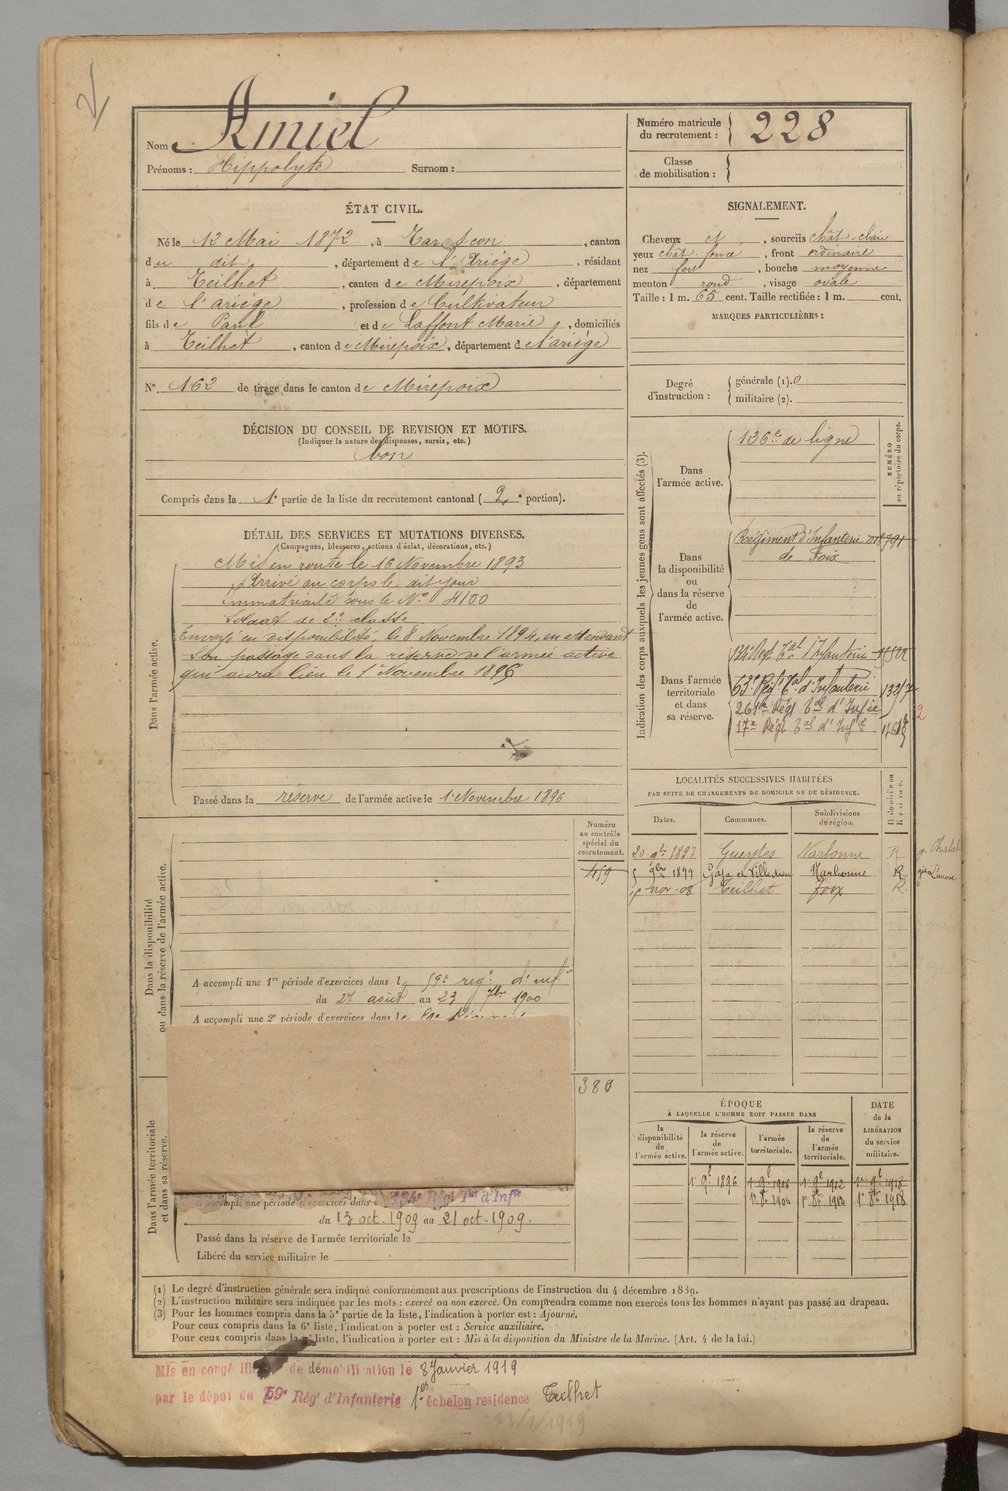 Nom Amiel
Prénoms : Hippolyte Surnom :
Numéro matricule du recrutement : 228
Classe de mobilisation :
ÉTAT CIVIL.
Né le 12 Mai 1872, à Tarascon, canton
du dit, département de l'Ariège, résidant
à Teilhet, canton de Mirepoix, département
de l'ariège, profession de Cultivateur
fils de Paul et de Laffont Marie, domiciliés
à Teilhet, canton de Mirepoix, département de l'ariège
N° 162 de tirage dans le canton de Mirepoix
DÉCISION DU CONSEIL DE REVISION ET MOTIFS.
(Indiquer la nature des dispenses, sursis, etc.)
bon
Compris dans la 1e partie de la liste du recrutement cantonal (2e portion).
DÉTAIL DES SERVICES ET MUTATIONS DIVERSES.
(Campagnes, blessures, actions d'éclat, décorations, etc.)
Dans l'armée active.
Mis en route le 16 Novembre 1893
Arrivé au corps le dit jour
Immatriculé sous le N° 4100
Soldat de 2e classe
Envoyé en disponibilité, le 8 Novembre 1894, en attendant
son passage dans la réserve de l'armée active
qui aura lieu le 1er Novembre 1896
Passé dans la réserve de l'armée active le 1 Novembre 1896
Dans la disponibilité ou dans la réserve de l'armée active.
Numéro au contrôle spécial du recrutement.
459
A accompli une 1re période d'exercices dans l 59e reg. d'inf
du 27 août au 23 7bre 1900
A accompli une 2e période d'exercices dans le
Dans l'armée territoriale et dans sa réserve.
380
A accompli une période d'exercices dans l 134e Régt Tal d'Infie
du 13 oct. 1909 au 21 oct. 1909.
Passé dans la réserve de l'armée territoriale le
Libéré du service militaire le
SIGNALEMENT.
Cheveux et, sourcils chât-clair
yeux chât. foncé, front ordinaire
nez fort, bouche moyenne
menton rond, visage ovale
Taille : 1 m. 65 cent. Taille rectifiée : 1 m. cent.
MARQUES PARTICULIÈRES :
Degré d'instruction : générale (1). 0
militaire (2).
Indication des corps auxquels les jeunes gens sont affectés (3).
NUMÉRO au répertoire du corps.
Dans l'armée active. 136e de ligne
Dans la disponibilité ou dans la réserve de l'armée active.
Régiment d'Infanterie
de Foix
Dans l'armée territoriale et dans sa réserve.
134e Regt Tal d'Infanterie
63e Régt Tal d'Infanterie
261e Régt Tal d'Infie
17e Régt Tal d'Infie
2
LOCALITÉS SUCCESSIVES HABITÉES
PAR SUITE DE CHANGEMENTS DE DOMICILE OU DE RÉSIDENCE.
Dates. Communes. Subdivisions de région. Domicile ou Résidence.
20 9bre 1897 Gueytes Narbonne R
5 9bre 1899 Gaja et Villedieu Narbonne R
nov-08 Teilhet Foix R
ÉPOQUE
À LAQUELLE L'HOMME DOIT PASSER DANS
DATE de la LIBÉRATION du service militaire.
la disponibilité de l'armée active. la réserve de l'armée active. l'armée territoriale. la réserve de l'armée territoriale.
1er 9bre 1896 1er 9bre 1906 1er 9bre 1912 1er 9bre 1918
1er 8bre 1906 1er 8bre 1912 1er 8bre 1918
(1) Le degré d'instruction générale sera indiqué conformément aux prescriptions de l'instruction du 4 décembre 1889.
(2) L'instruction militaire sera indiquée par les mots : exercé ou non exercé. On comprendra comme non exercés tous les hommes n'ayant pas passé au drapeau.
(3) Pour les hommes compris dans la 5e partie de la liste, l'indication à porter est : Ajourné.
Pour ceux compris dans la 6e liste, l'indication à porter est : Service auxiliaire.
Pour ceux compris dans la liste, l'indication à porter est : Mis à la disposition du Ministre de la Marine. (Art. 4 de la loi.)
Mis en congé de démobilisation le 8 Janvier 1919
par le dépôt du 59e Régt d'Infanterie 1er échelon residence Teilhet